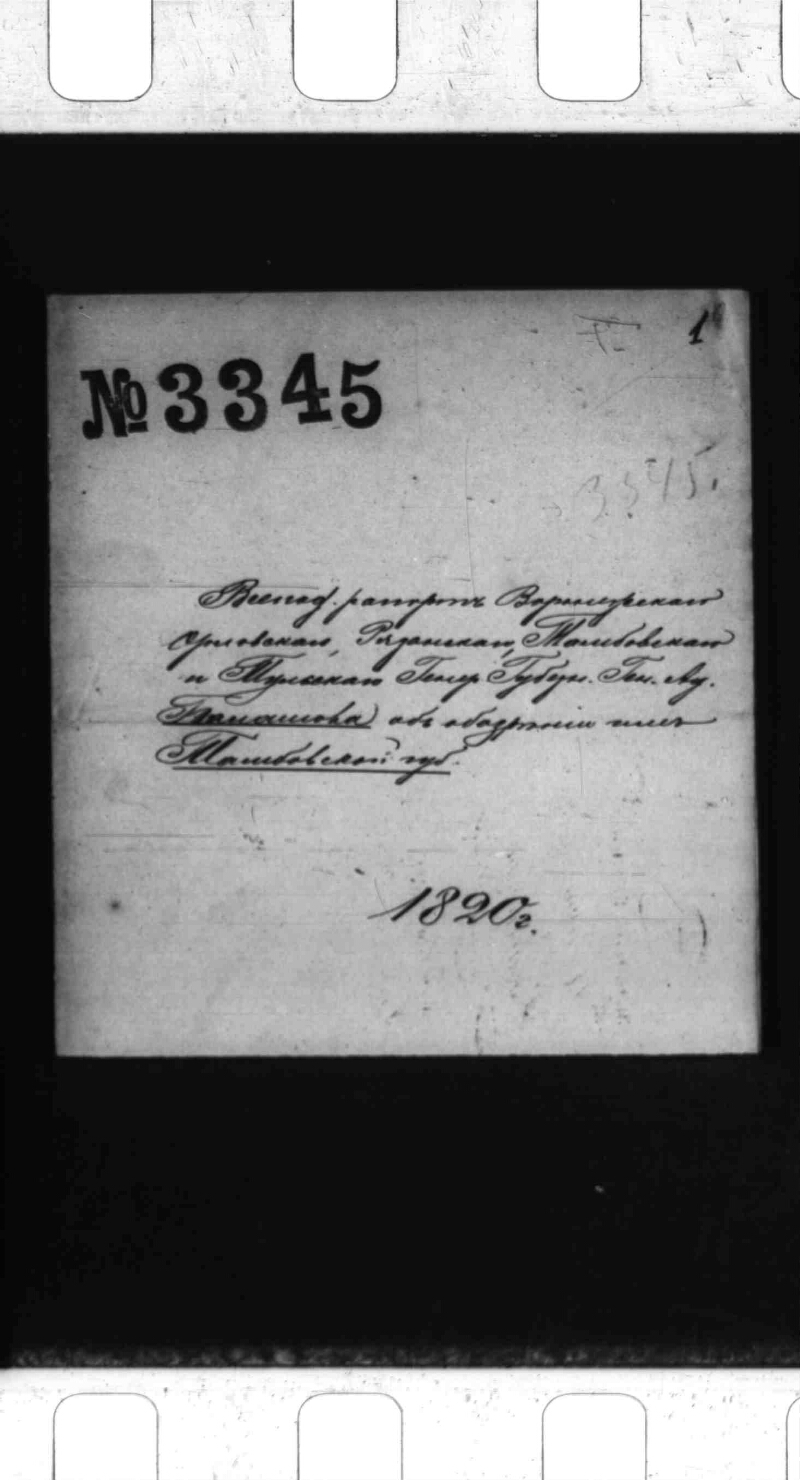 1
№ 3345
3345.
Всепод. рапортъ Воронежскаго
Орловскаго, Рязанскаго, Тамбовскаго
и Тульскаго Генер. Губерн. Ген. Ад.
Балашова объ обозрѣніи имъ
Тамбовской губ.
1820 г.